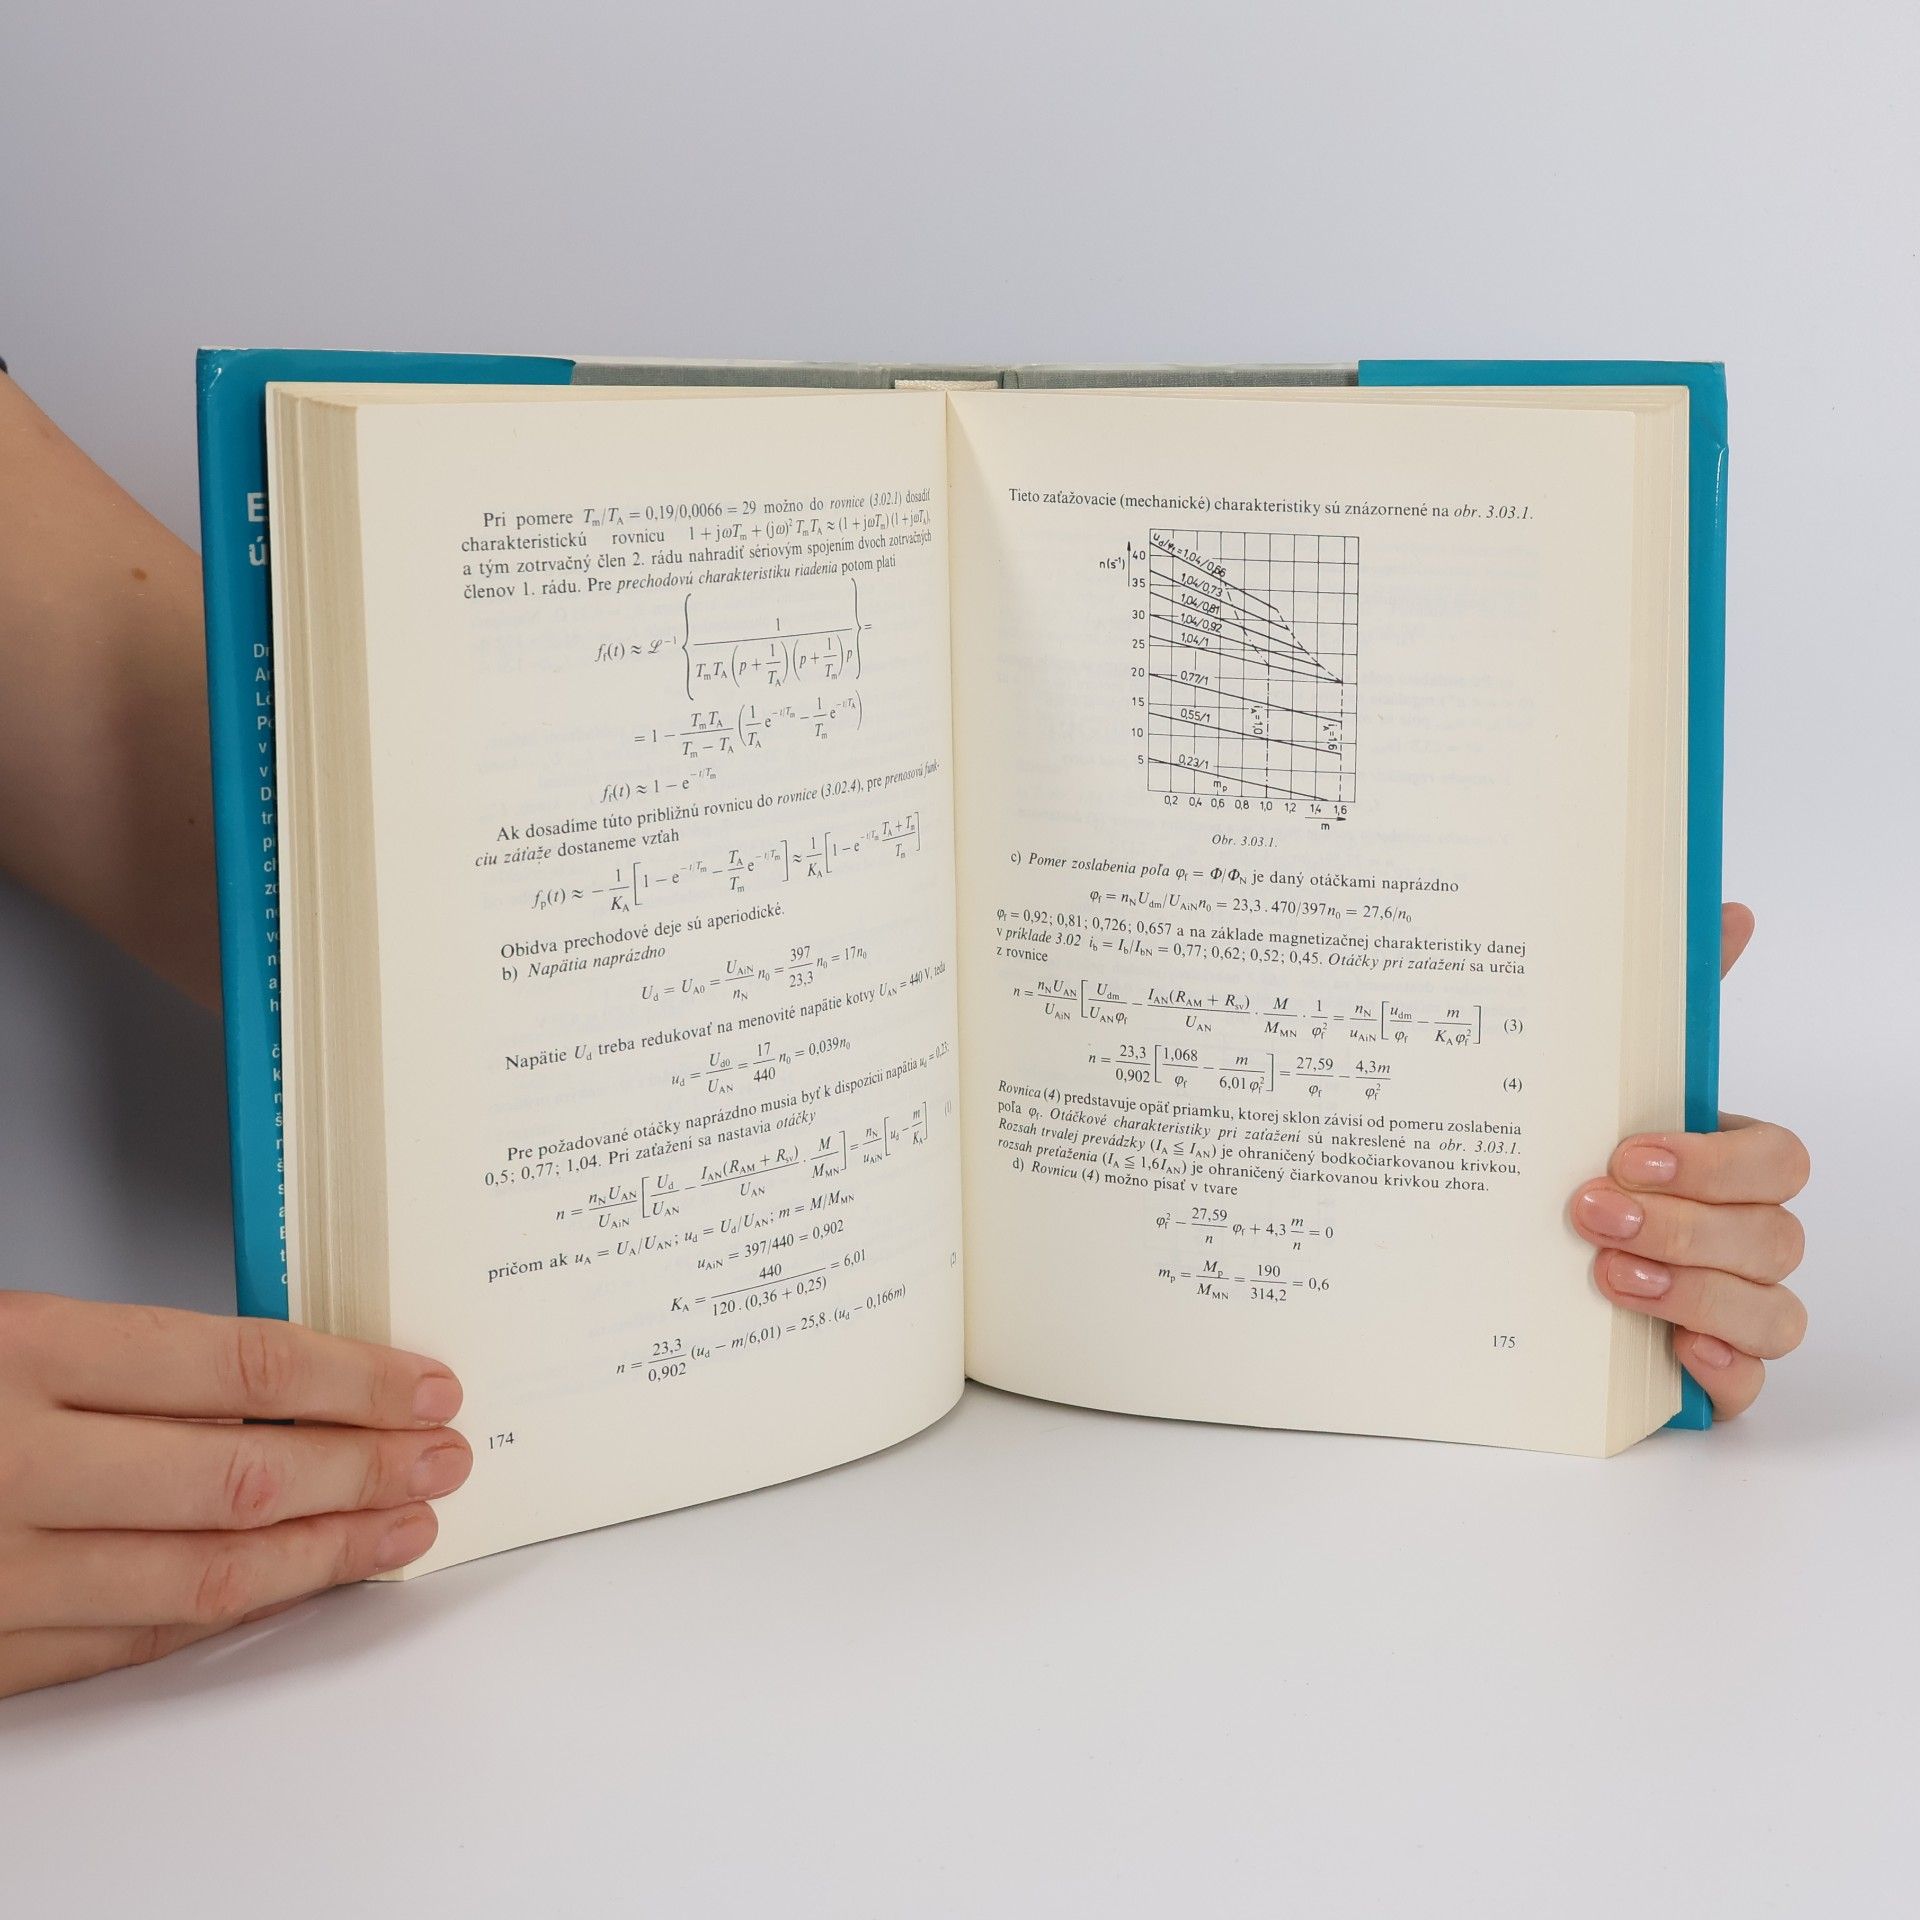 E
ú
Dr
Au
Lč
v
v
D
tr
p
ch
Pri pomere Tₘ/T_A = 0,19/0,0066 = 29 možno do rovnice (3.02.1) dosadiť
charakteristickú rovnicu 1 + jωTₘ + (jω)² TₘT_A ≈ (1 + jωTₘ)(1 + jωT_A),
a tým zotrvačný člen 2. rádu nahradiť sériovým spojením dvoch zotrvačných
členov 1. rádu. Pre prechodovú charakteristiku riadenia potom platí
f_r(t) ≈ ℒ⁻¹ { 1 / (TₘT_A (p + 1/T_A)(p + 1/Tₘ) p) } =
= 1 − TₘT_A/(Tₘ − T_A) (1/T_A e^(−t/Tₘ) − 1/Tₘ e^(−t/T_A))
f_r(t) ≈ 1 − e^(−t/Tₘ)
Ak dosadíme túto približnú rovnicu do rovnice (3.02.4), pre prenosovú funk-
ciu záťaže dostaneme vzťah
f_p(t) ≈ − 1/K_A [1 − e^(−t/Tₘ) − T_A/Tₘ e^(−t/Tₘ)] ≈ 1/K_A [1 − e^(−t/Tₘ) (T_A + Tₘ)/Tₘ]
Obidva prechodové deje sú aperiodické.
b) Napätia naprázdno
U_d = U_A0 = U_AiN/n_N n₀ = 397/23,3 n₀ = 17n₀
Napätie U_d treba redukovať na menovité napätie kotvy U_AN = 440 V, teda
u_d = U_d0/U_AN = 17/440 n₀ = 0,039n₀
Pre požadované otáčky naprázdno musia byť k dispozícii napätia u_d = 0,23;
0,5; 0,77; 1,04. Pri zaťažení sa nastavia otáčky
n = n_N U_AN/U_AiN [U_d/U_AN − I_AN(R_AM + R_sv)/U_AN · M/M_MN] = n_N/u_AiN [u_d − m/K_A] (1)
pričom ak u_A = U_A/U_AN; u_d = U_d/U_AN; m = M/M_MN
u_AiN = 397/440 = 0,902
K_A = 440/(120 . (0,36 + 0,25)) = 6,01 (2
n = 23,3/0,902 (u_d − m/6,01) = 25,8 . (u_d − 0,166m)
174
Tieto zaťažovacie (mechanické) charakteristiky sú znázornené na obr. 3.03.1.
n(s⁻¹)
40
35
30
25
20
15
10
5
u_d/φ_f=1,04/0,66
1,04/0,73
1,04/0,81
1,04/0,92
1,04/1
0,77/1
0,55/1
0,23/1
i_A=1,0
i_A=1,6
m_p
0,2 0,4 0,6 0,8 1,0 1,2 1,4 1,6
m
Obr. 3.03.1.
c) Pomer zoslabenia poľa φ_f = Φ/Φ_N je daný otáčkami naprázdno
φ_f = n_N U_dm/U_AiN n₀ = 23,3 . 470/397n₀ = 27,6/n₀
φ_f = 0,92; 0,81; 0,726; 0,657 a na základe magnetizačnej charakteristiky danej
v príklade 3.02 i_b = I_b/I_bN = 0,77; 0,62; 0,52; 0,45. Otáčky pri zaťažení sa určia
z rovnice
n = n_N U_AN/U_AiN [U_dm/(U_AN φ_f) − I_AN(R_AM + R_sv)/U_AN · M/M_MN · 1/φ_f²] = n_N/u_AiN [u_dm/φ_f − m/(K_A φ_f²)] (3)
n = 23,3/0,902 [1,068/φ_f − m/(6,01 φ_f²)] = 27,59/φ_f − 4,3m/φ_f² (4)
Rovnica (4) predstavuje opäť priamku, ktorej sklon závisí od pomeru zoslabenia
poľa φ_f. Otáčkové charakteristiky pri zaťažení sú nakreslené na obr. 3.03.1.
Rozsah trvalej prevádzky (I_A ≦ I_AN) je ohraničený bodkočiarkovanou krivkou,
rozsah preťaženia (I_A ≦ 1,6I_AN) je ohraničený čiarkovanou krivkou zhora.
d) Rovnicu (4) možno písať v tvare
φ_f² − 27,59/n φ_f + 4,3 m/n = 0
m_p = M_p/M_MN = 190/314,2 = 0,6
175